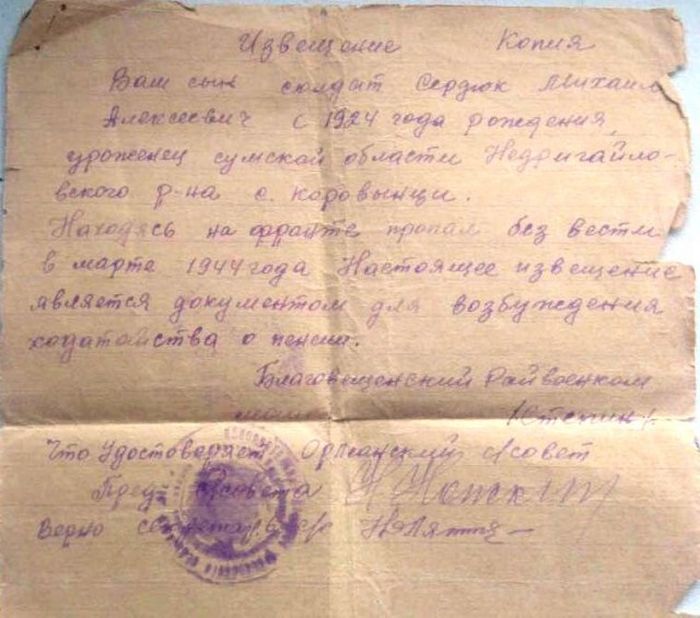 Извещение Копия
Ваш сын солдат Сердюк Михаил
Алексеевич с 1924 года рождения,
уроженец сумской области Недригайло-
вского р-на с. Коровынци.
Находясь на фронте пропал без вести
в марте 1944 года Настоящее извещение
является документом для возбуждения
ходатайства о пенсии.
Благовещенский Райвоенком
Что Удостоверяет Оржанский с/совет
Пред. с/совета
Верно секретарь с/с